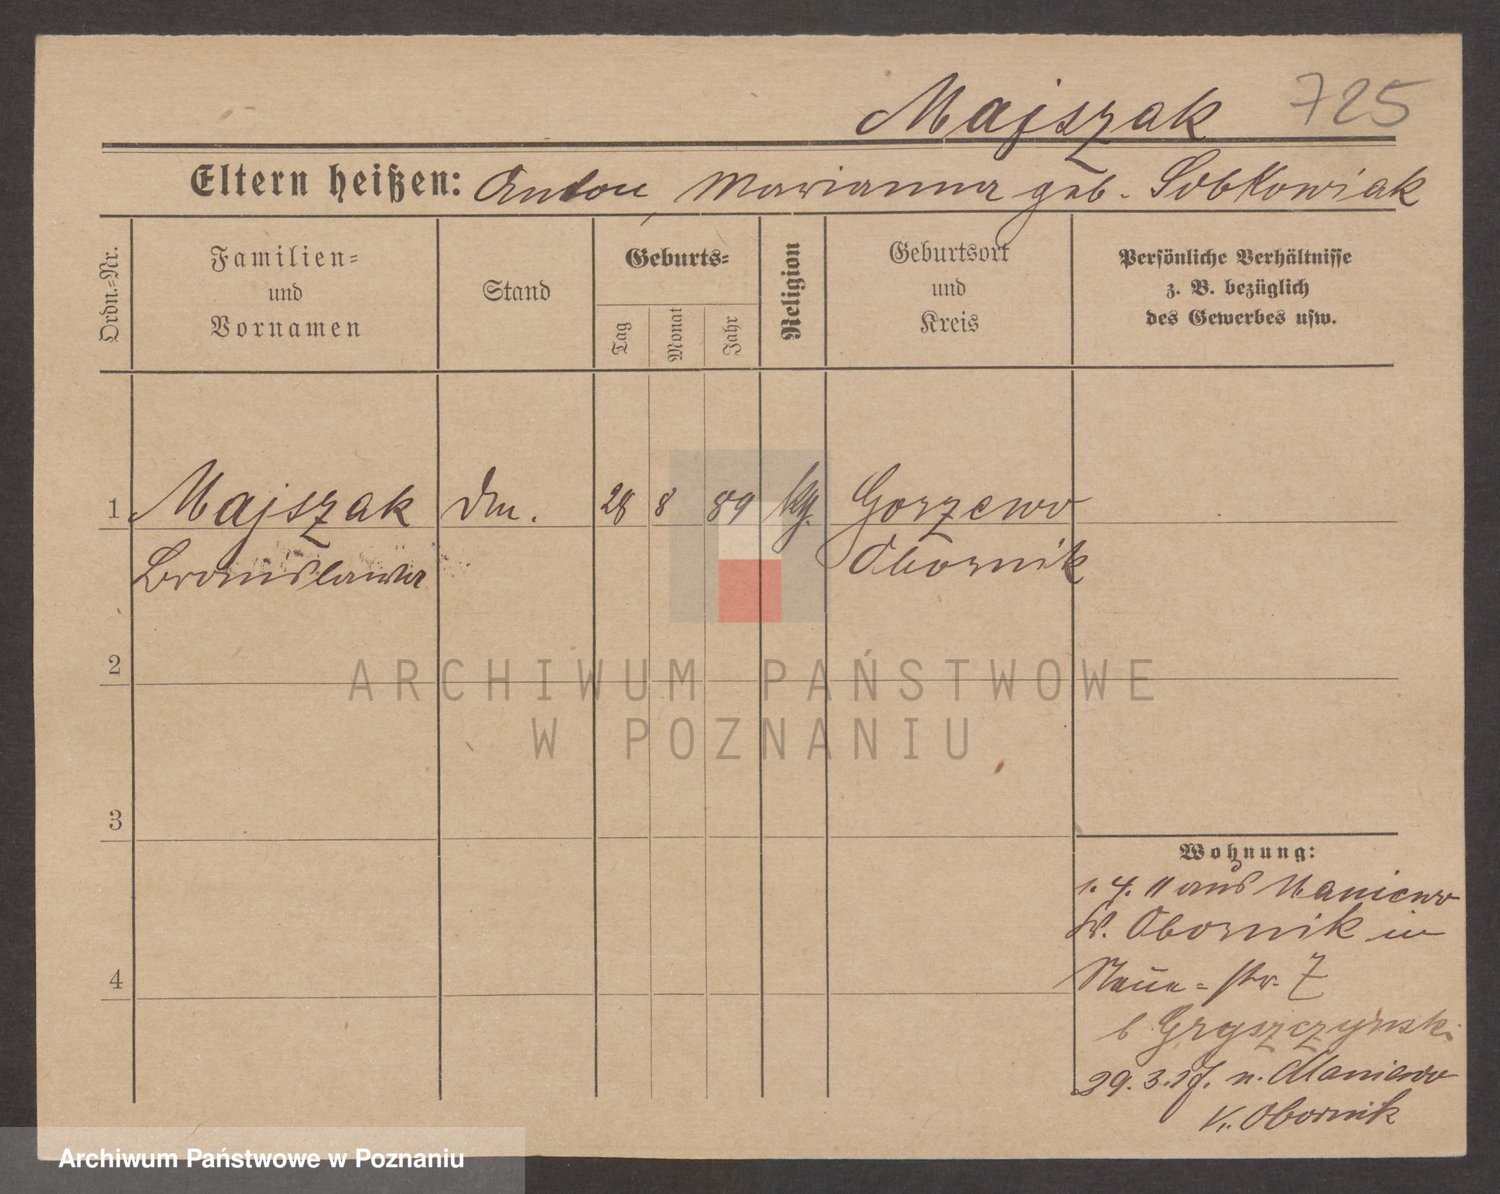 Majszak 725
Eltern heißen: Anton, Marianna geb. Sobkowiak
Ordn.-Nr.
Familien-
und
Vornamen
Stand
Geburts-
Tag
Monat
Jahr
Religion
Geburtsort
und
Kreis
Persönliche Verhältnisse
z. B. bezüglich
des Gewerbes usw.
1 Majszak Dm. 28 8 89 kg. Gorzewo
Bronislawa Obornik
2
3
4
Wohnung:
1. 4. 11 aus Maniewo
Kr. Obornik in
Neue-str. 7
b Gryszczynski
29. 3. 17. n. Maniewo
Kr. Obornik
ARCHIWUM PAŃSTWOWE
W POZNANIU
Archiwum Państwowe w Poznaniu